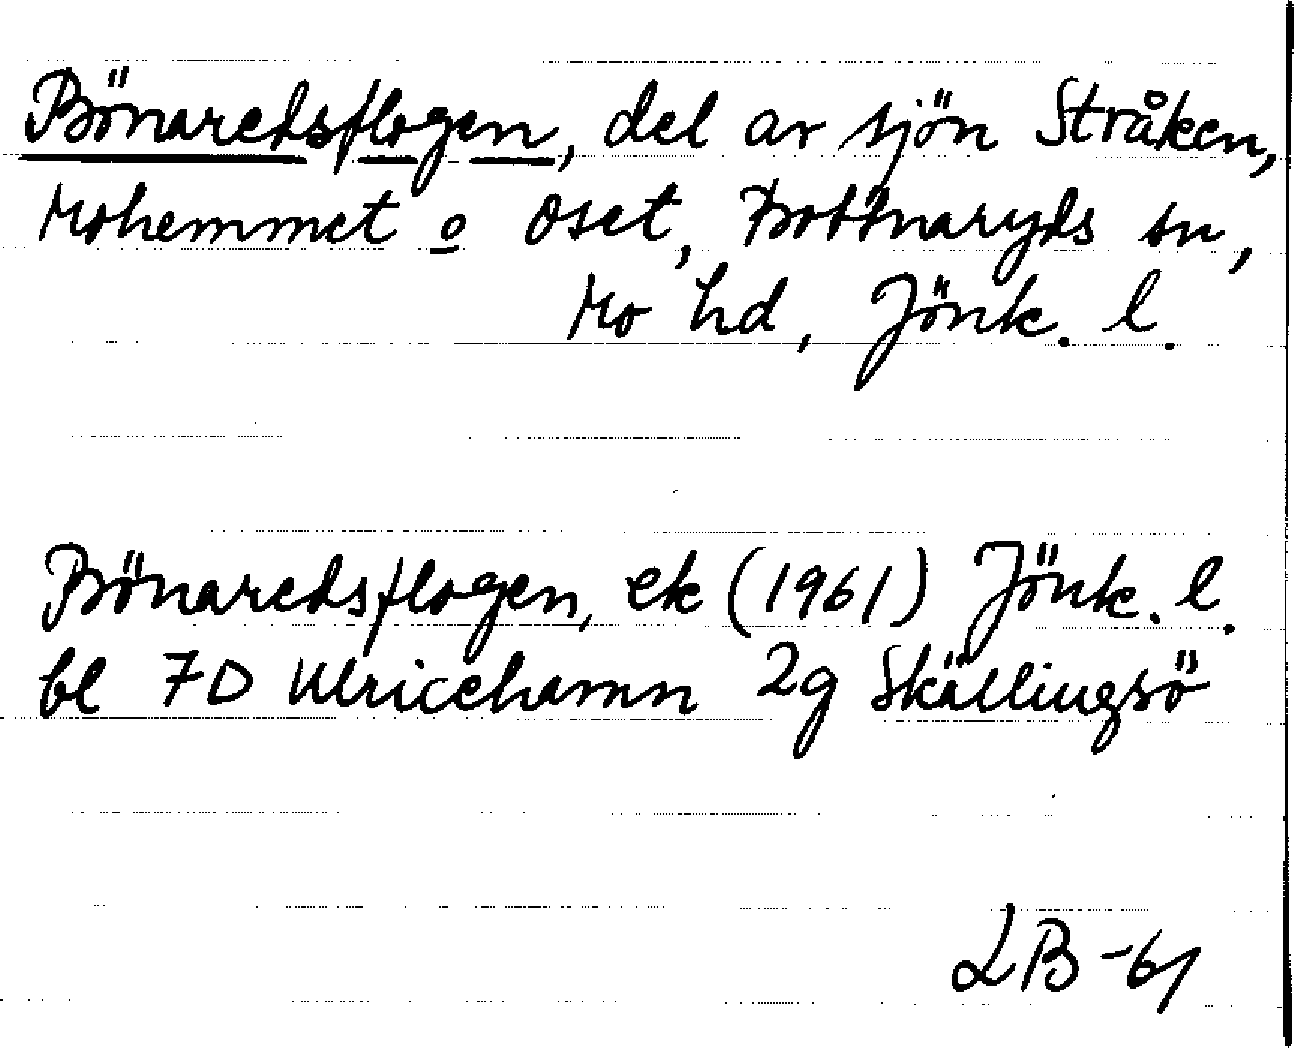 Bönaredsflogen, del av sjön Stråken,
Mohemmet o Oset, Bottnaryds sn,
Mo hd, Jönk. l.
Bönaredsflogen, ek (1961) Jönk. l.
bl 7D Ulricehamn 2g Skällingsö
LB -61